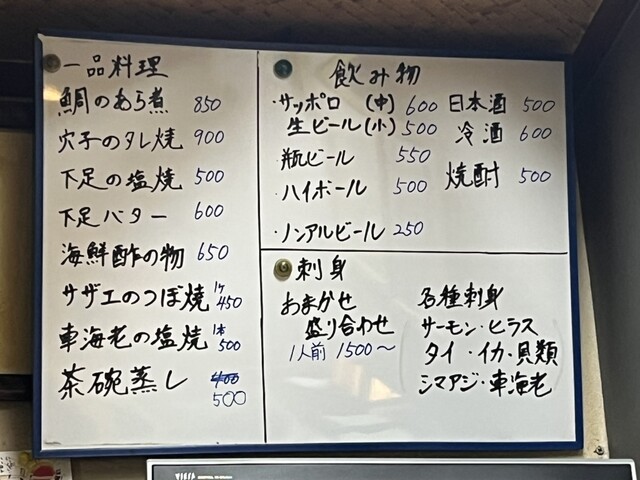 一品料理
鯛のあら煮 850
穴子のタレ焼 900
下足の塩焼 500
下足バター 600
海鮮酢の物 650
サザエのつぼ焼 1ケ 450
車海老の塩焼 1本 500
茶碗蒸し 400 500
飲み物
・サッポロ (中) 600
生ビール(小) 500
・瓶ビール 550
・ハイボール 500
・ノンアルビール 250
日本酒 500
冷酒 600
焼酎 500
刺身
おまかせ
盛り合わせ
1人前 1500〜
各種刺身
サーモン・ヒラス
タイ・イカ・貝類
シマアジ・車海老